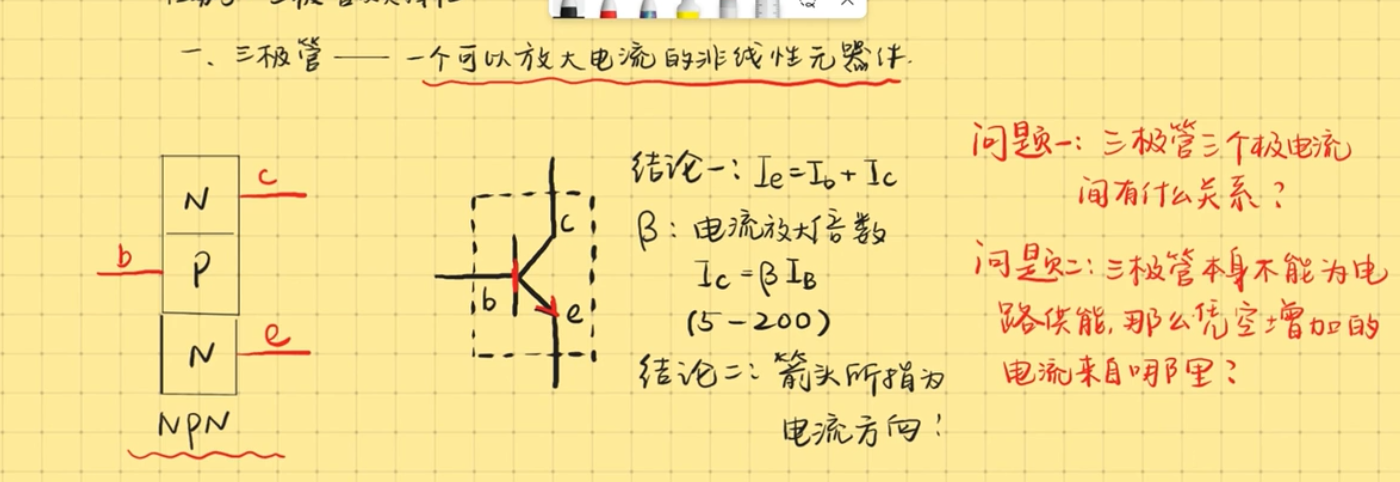 一、三极管——一个可以放大电流的非线性元器件.
N
c
b
P
N
e
NPN
c
b
e
结论一: Ie=Ib+Ic
β: 电流放大倍数
Ic=βIB
(5-200)
结论二: 箭头所指为
电流方向!
问题一: 三极管三个极电流
间有什么关系?
问题二: 三极管本身不能为电
路供能,那么凭空增加的
电流来自哪里?